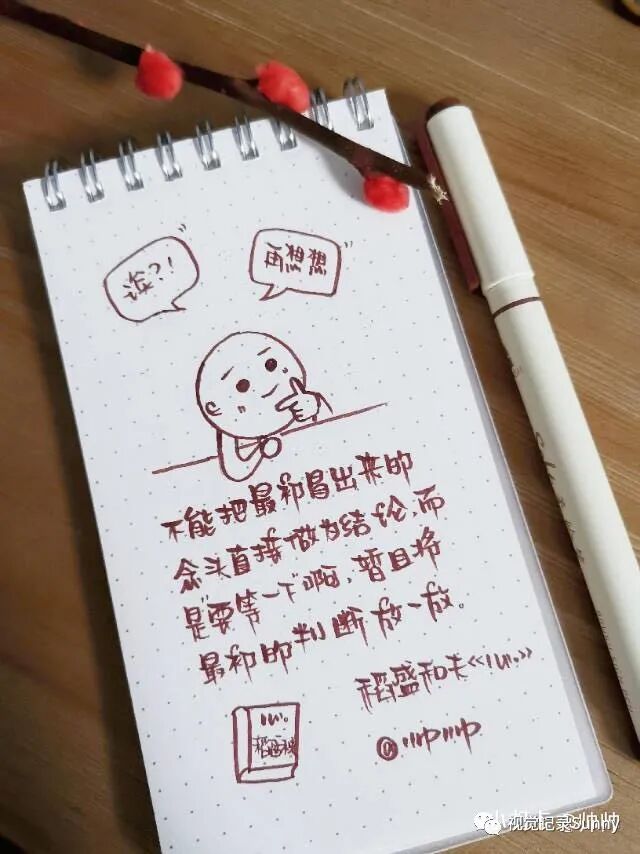 诶?!
再想想
不能把最初冒出来的
念头直接做为结论,而
是要等一下啊,暂且将
最初的判断放一放。
稻盛和夫《心。》
心。
@帅帅
视觉记录Sunny